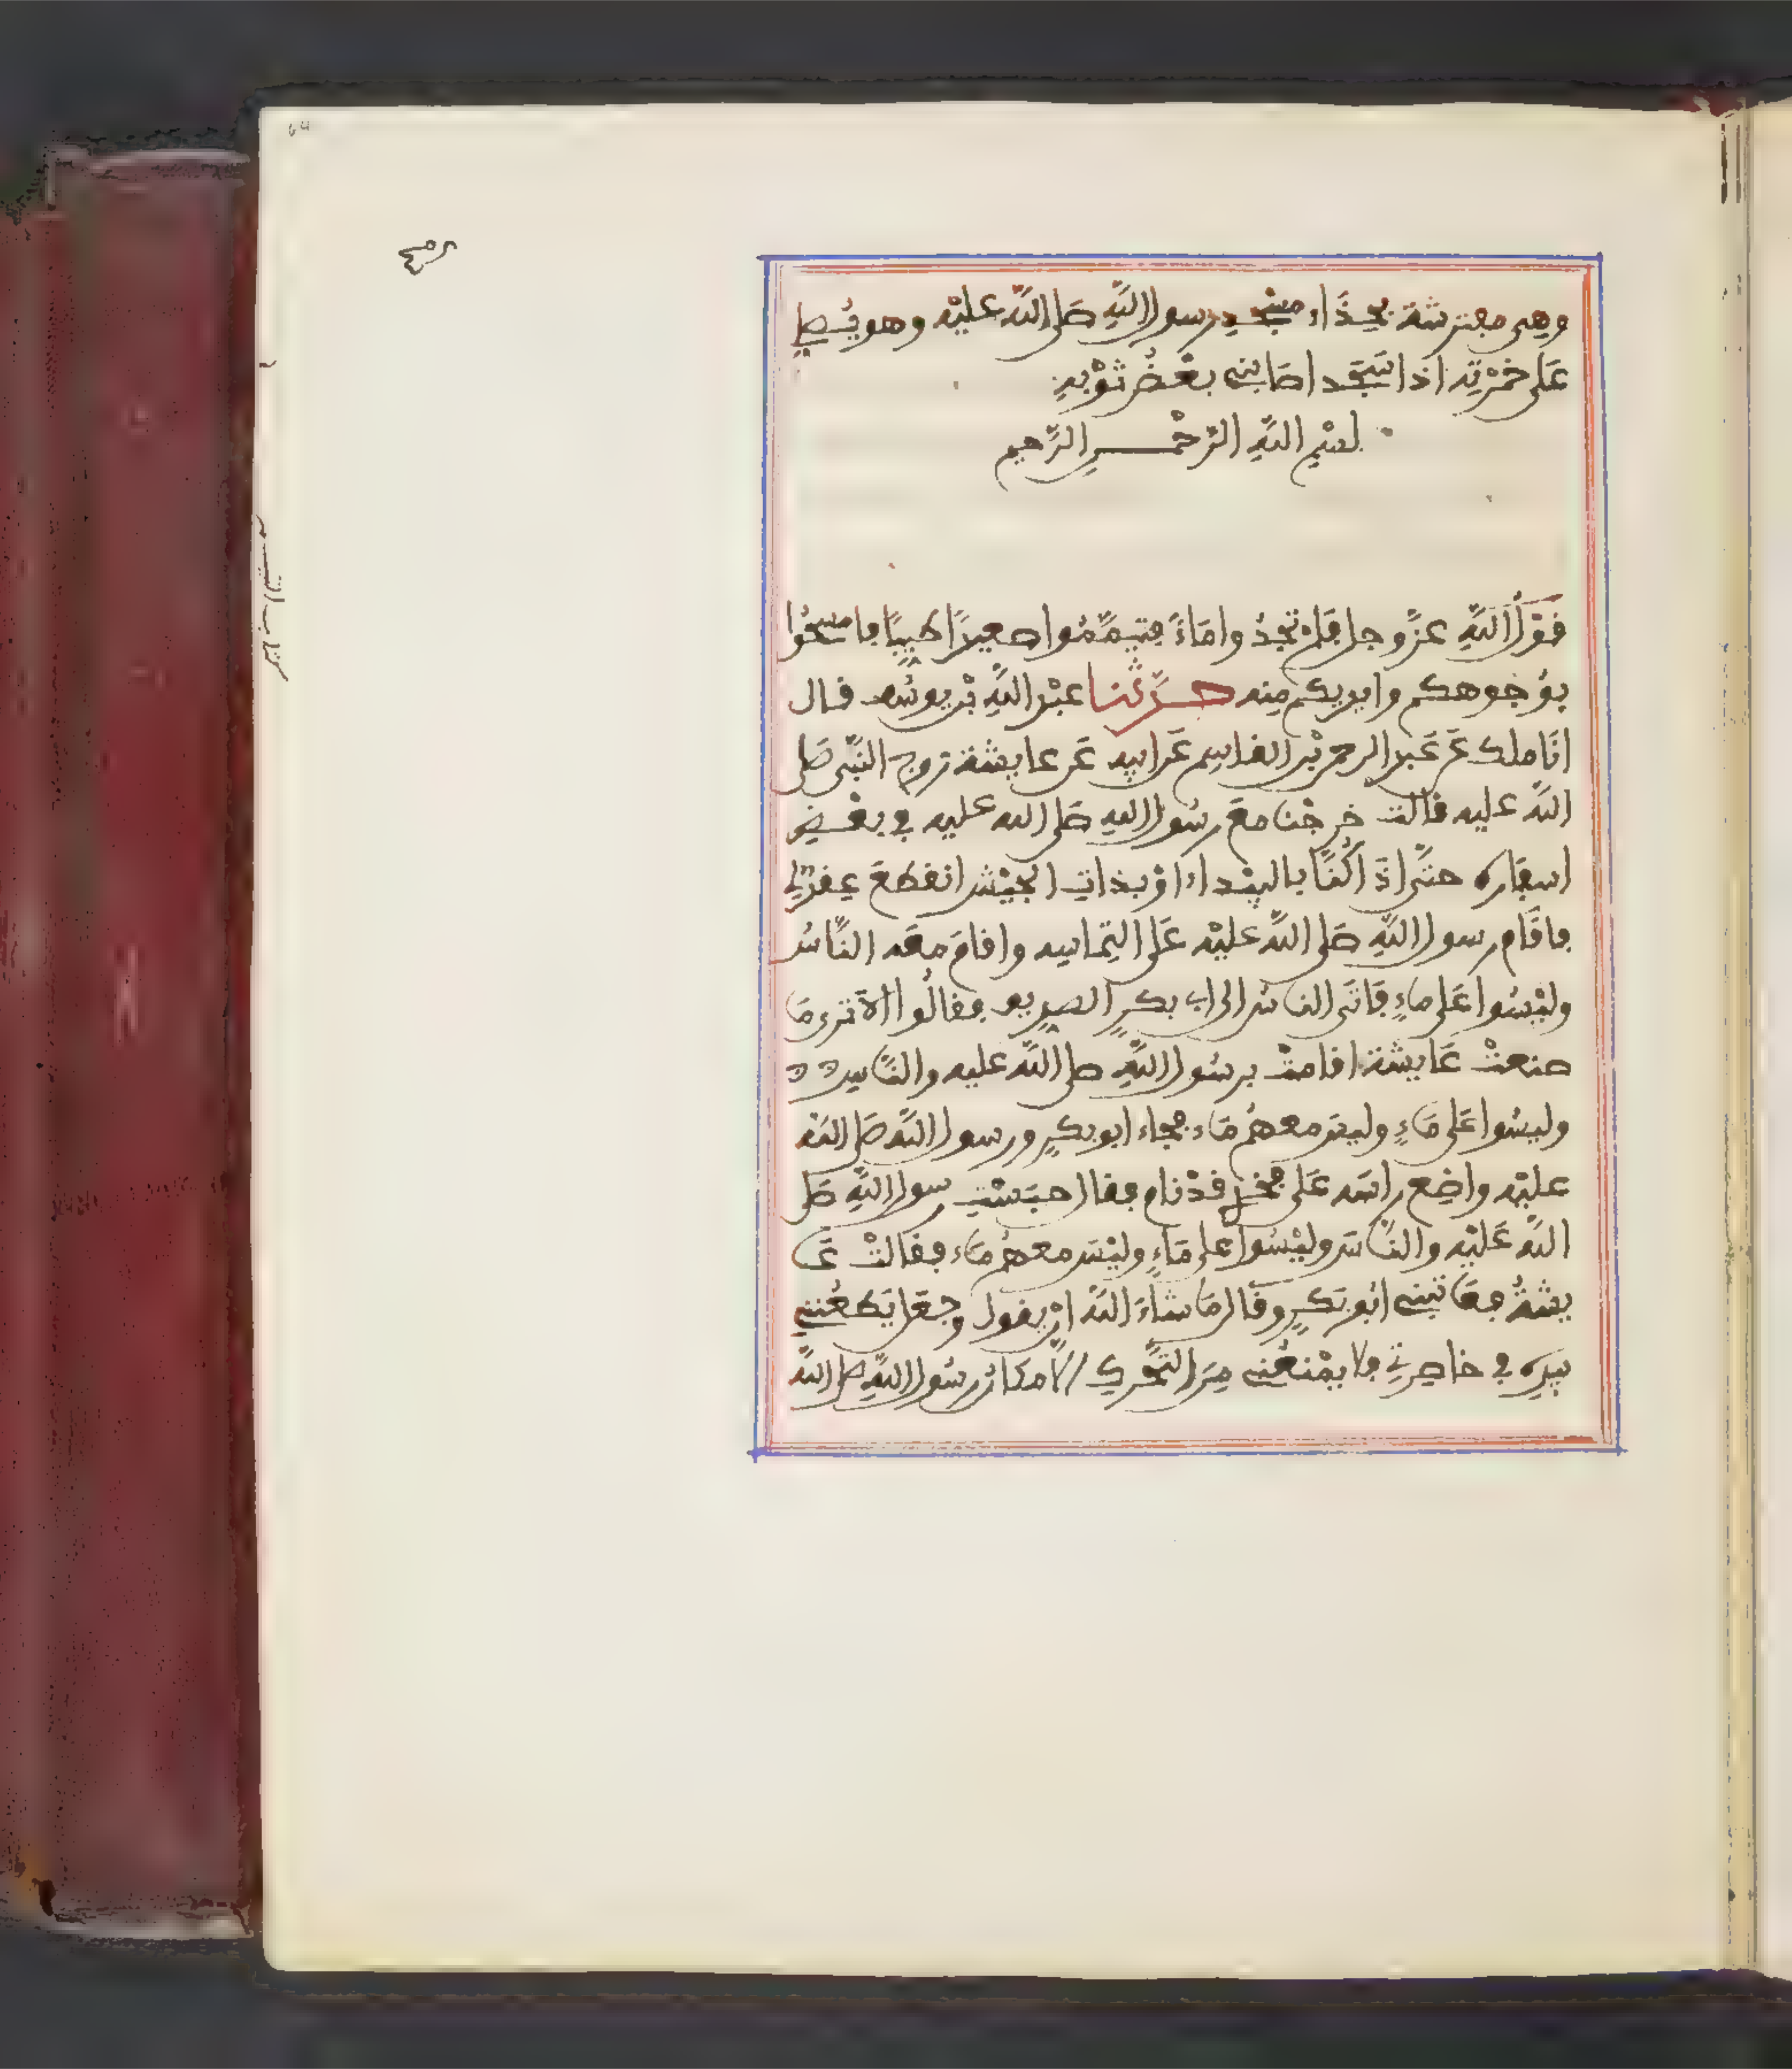 وهي مفترشة بحذاء مسجد رسول الله صلى الله عليه وهو يصلي
على خمرته اذا سجد اصابني بعض ثوبه
بسم الله الرحمن الرحيم
قول الله عز وجل فلم تجدوا ماء فتيمموا صعيدا طيبا فامسحوا
بوجوهكم وايديكم منه حدثنا عبد الله بن يوسف قال
انا ملك عن عبد الرحمن بن القاسم عن ابيه عن عايشة زوج النبي صلى
الله عليه قالت خرجنا مع رسول الله صلى الله عليه في بعض
اسفاره حتى اذا كنا بالبيداء او بذات الجيش انقطع عقد لي
فاقام رسول الله صلى الله عليه على التماسه واقام معه الناس
وليسوا على ماء فاتى الناس الى ابي بكر الصديق فقالوا الا ترى ما
صنعت عايشة اقامت برسول الله صلى الله عليه والناس
وليسوا على ماء وليس معهم ماء فجاء ابو بكر ورسول الله صلى الله
عليه واضع راسه على فخذي قد نام فقال حبست رسول الله صلى
الله عليه والناس وليسوا على ماء وليس معهم ماء فقالت عا
يشة فعاتبني ابو بكر وقال ما شاء الله ان يقول وجعل يطعنني
بيده في خاصرتي فلا يمنعني من التحرك الا مكان رسول الله صلى الله